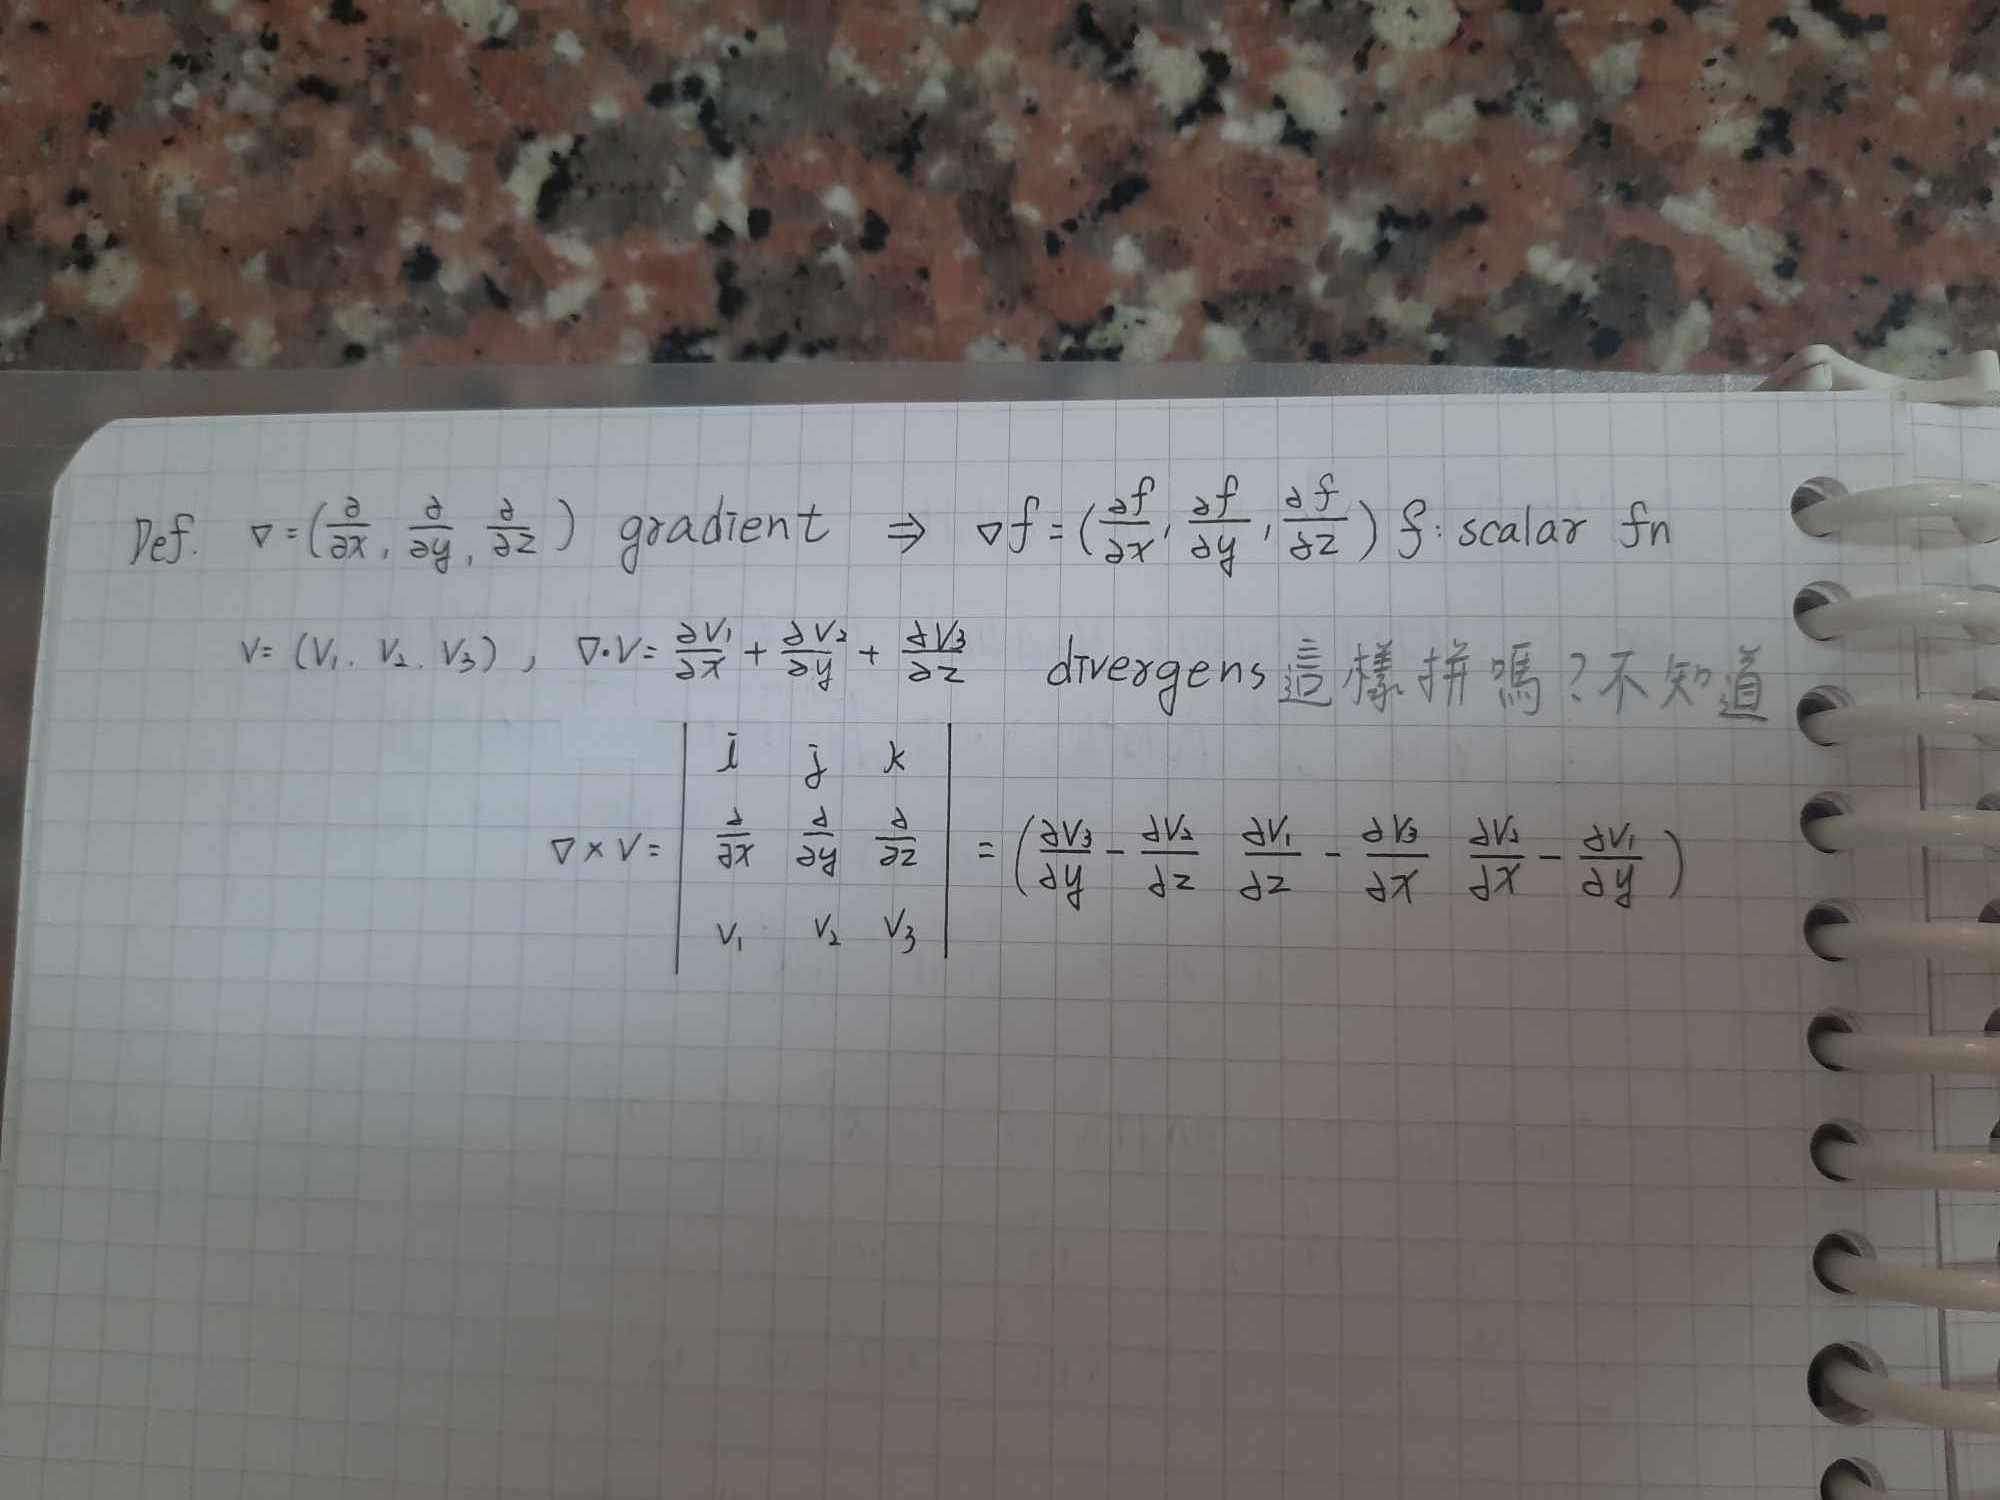 Def. ∇=(∂/∂x, ∂/∂y, ∂/∂z) gradient ⇒ ∇f=(∂f/∂x, ∂f/∂y, ∂f/∂z) f: scalar fn
V=(V₁. V₂. V₃), ∇·V=∂V₁/∂x+∂V₂/∂y+∂V₃/∂z divergens 這樣拼嗎?不知道
∇×V=|i j k; ∂/∂x ∂/∂y ∂/∂z; V₁ V₂ V₃|=(∂V₃/∂y-∂V₂/∂z ∂V₁/∂z-∂V₃/∂x ∂V₂/∂x-∂V₁/∂y)